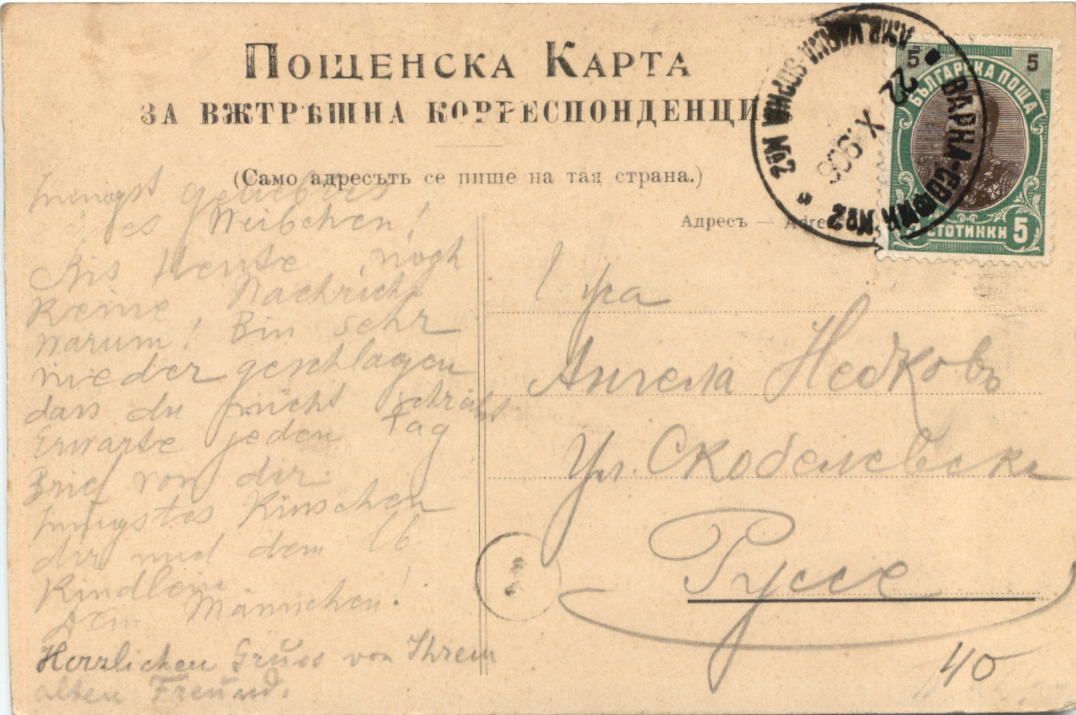 ПОЩЕНСКА КАРТА
ЗА ВѪТРѢШНА КОРРЕСПОНДЕНЦИ
(Само адресътъ се пише на тая страна.)
Адресъ — Adre
5 5
БЪЛГАРСКА ПОЩА
СТОТИНКИ 5
ВАРНА-СОФИЯ №2
22 X 906
Innigst geliebtes
Weibchen!
Bis Heute noch
Keine Nachricht
warum! Bin sehr
nieder geschlagen
dass du nicht schreibst
Erwarte jeden Tag
Brief von dir.
Innigstes Küsschen
dir und dem lb
Kindlein
Dein Männchen!
Herzlichen Gruss von Ihrem
alten Freund.
Г-жа
Ангела Недковъ
Ул. Скобелевска
Руссе
40